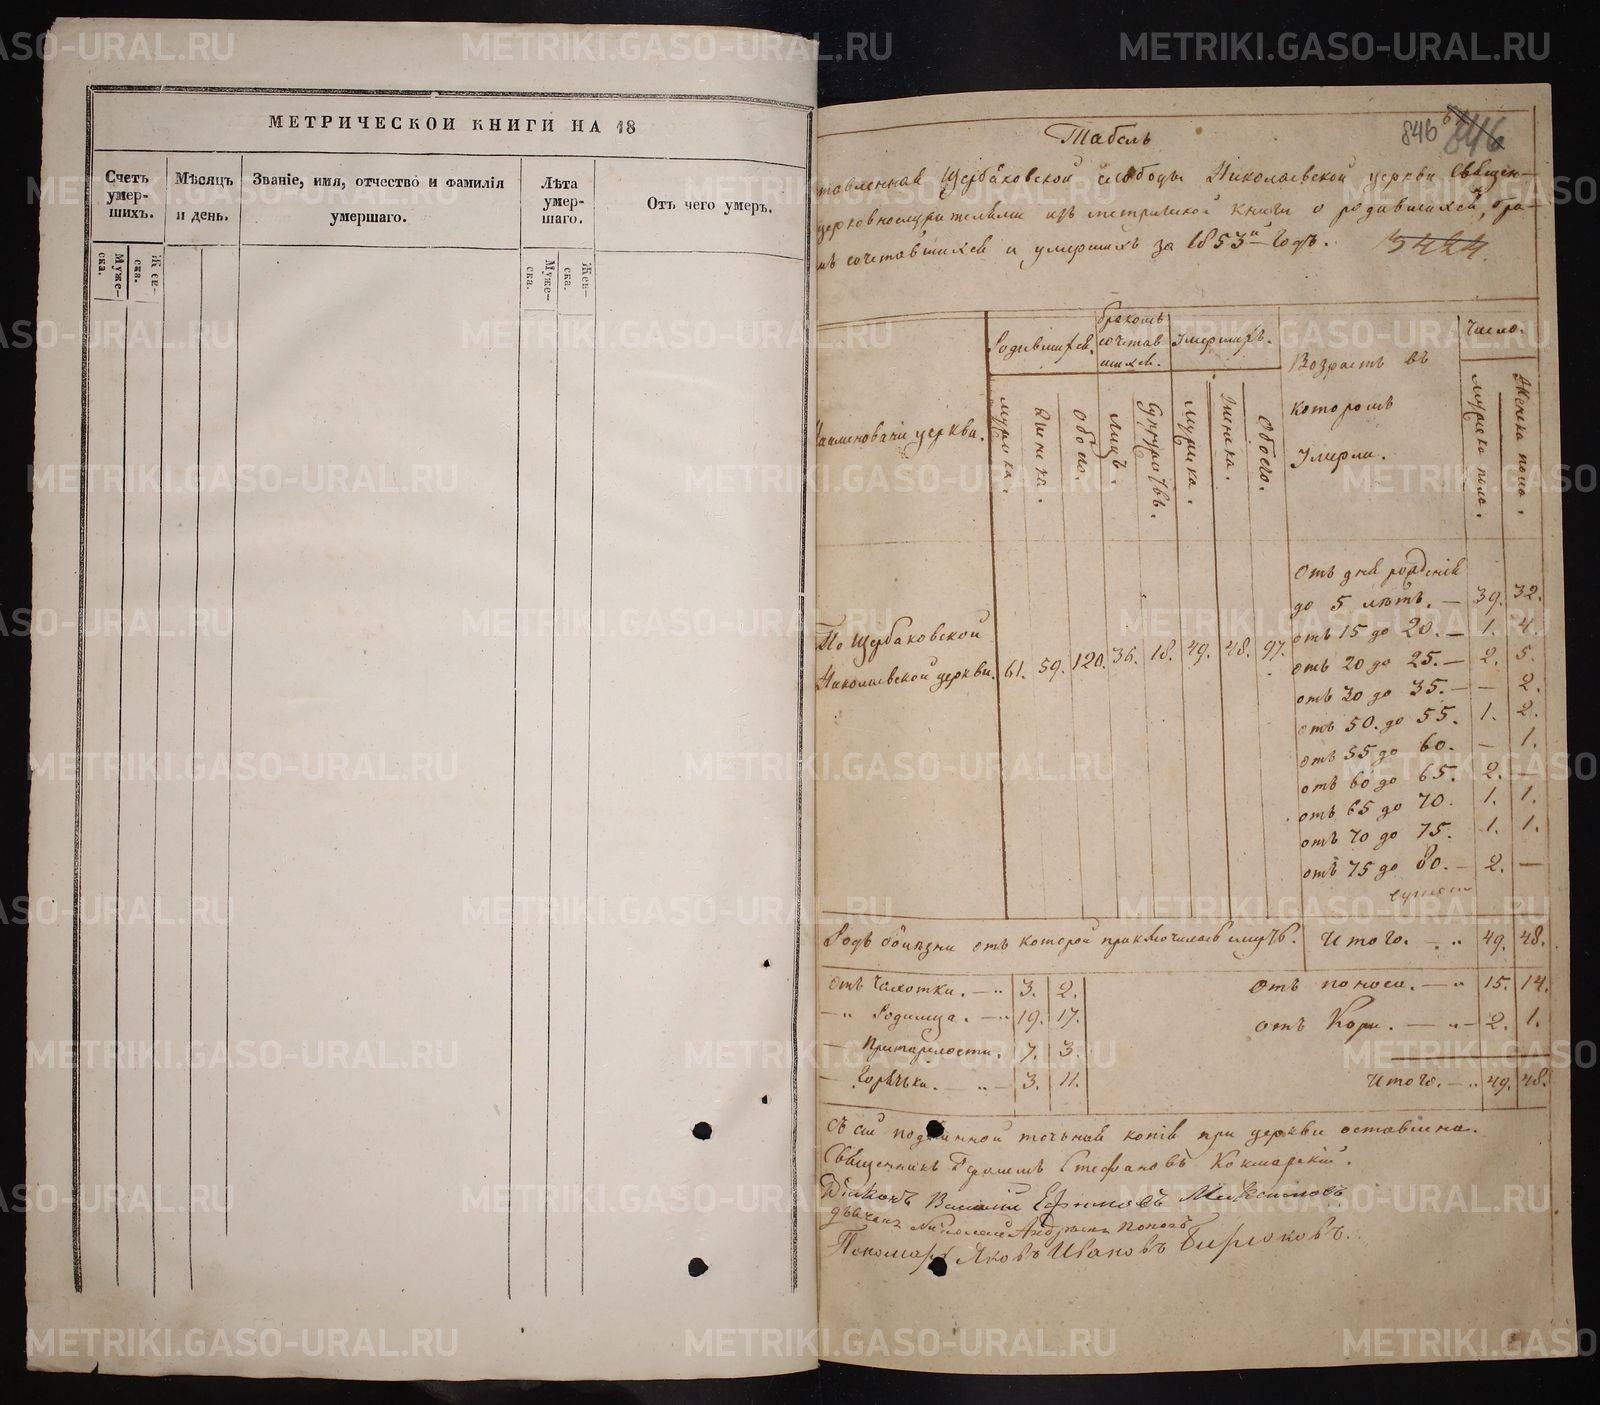 МЕТРИЧЕСКОЙ КНИГИ НА 18
Счетъ умер- шихъ.
Муже- ска.
Жен- ска.
Мѣсяцъ и день.
Званіе, имя, отчество и фамилія умершаго.
Лѣта умер- шаго.
Муже- ска.
Жен- ска.
Отъ чего умеръ.
846 846
Табель
тавленная Щербаковской слободы Николаевской церкви Священ-
церковнослужителями изъ метрической книги о родившихся, бра-
мъ сочетавшихся и умершихъ за 1853й годъ. 5424.
Наименованіе церкви.
Родившихся.
мужска. женска. Обоего.
бракомъ сочетав шихся.
Лицъ. Супружествъ.
Умершихъ.
мужска. женска. Обоего.
Возрастъ въ которомъ Умерли.
Число.
мужска пола. Женска пола.
По Щербаковской
Николаевской церкви. 61. 59. 120. 36. 18. 49. 48. 97.
Отъ дня рожденія
до 5 лѣтъ. — 39. 32.
отъ 15 до 20. — 1. 4.
отъ 20 до 25. — 2. 5.
отъ 30 до 35. — — 2.
отъ 50. до 55. 1. 2.
отъ 55 до 60. — 1.
отъ 60 до 65. 2. —
отъ 65 до 70. 1. 1.
отъ 70 до 75. 1. 1.
отъ 75 до 80. — 2. —
Родъ болѣзни отъ которой приключилась смерть. Итого. — „ 49. 48.
отъ Чахотки. — „ 3. 2.
— „ Родимца. — „ 19. 17.
— Престарелости. 7. 3.
— Горячки. — „ — 3. 11.
Отъ поноса. — „ 15. 14.
отъ Кори. — „ — 2. 1.
Итого. — „ 49. 48.
Съ сей подлинной точная копія при церкви оставлена.
Священникъ Герасимъ Стефановъ Кокшарскій.
Діаконъ Василій Ефимовъ Максимовъ
дьячекъ Николай Поповъ
Пономарь Яковъ Ивановъ Бирюковъ.
METRIKI.GASO-URAL.RU